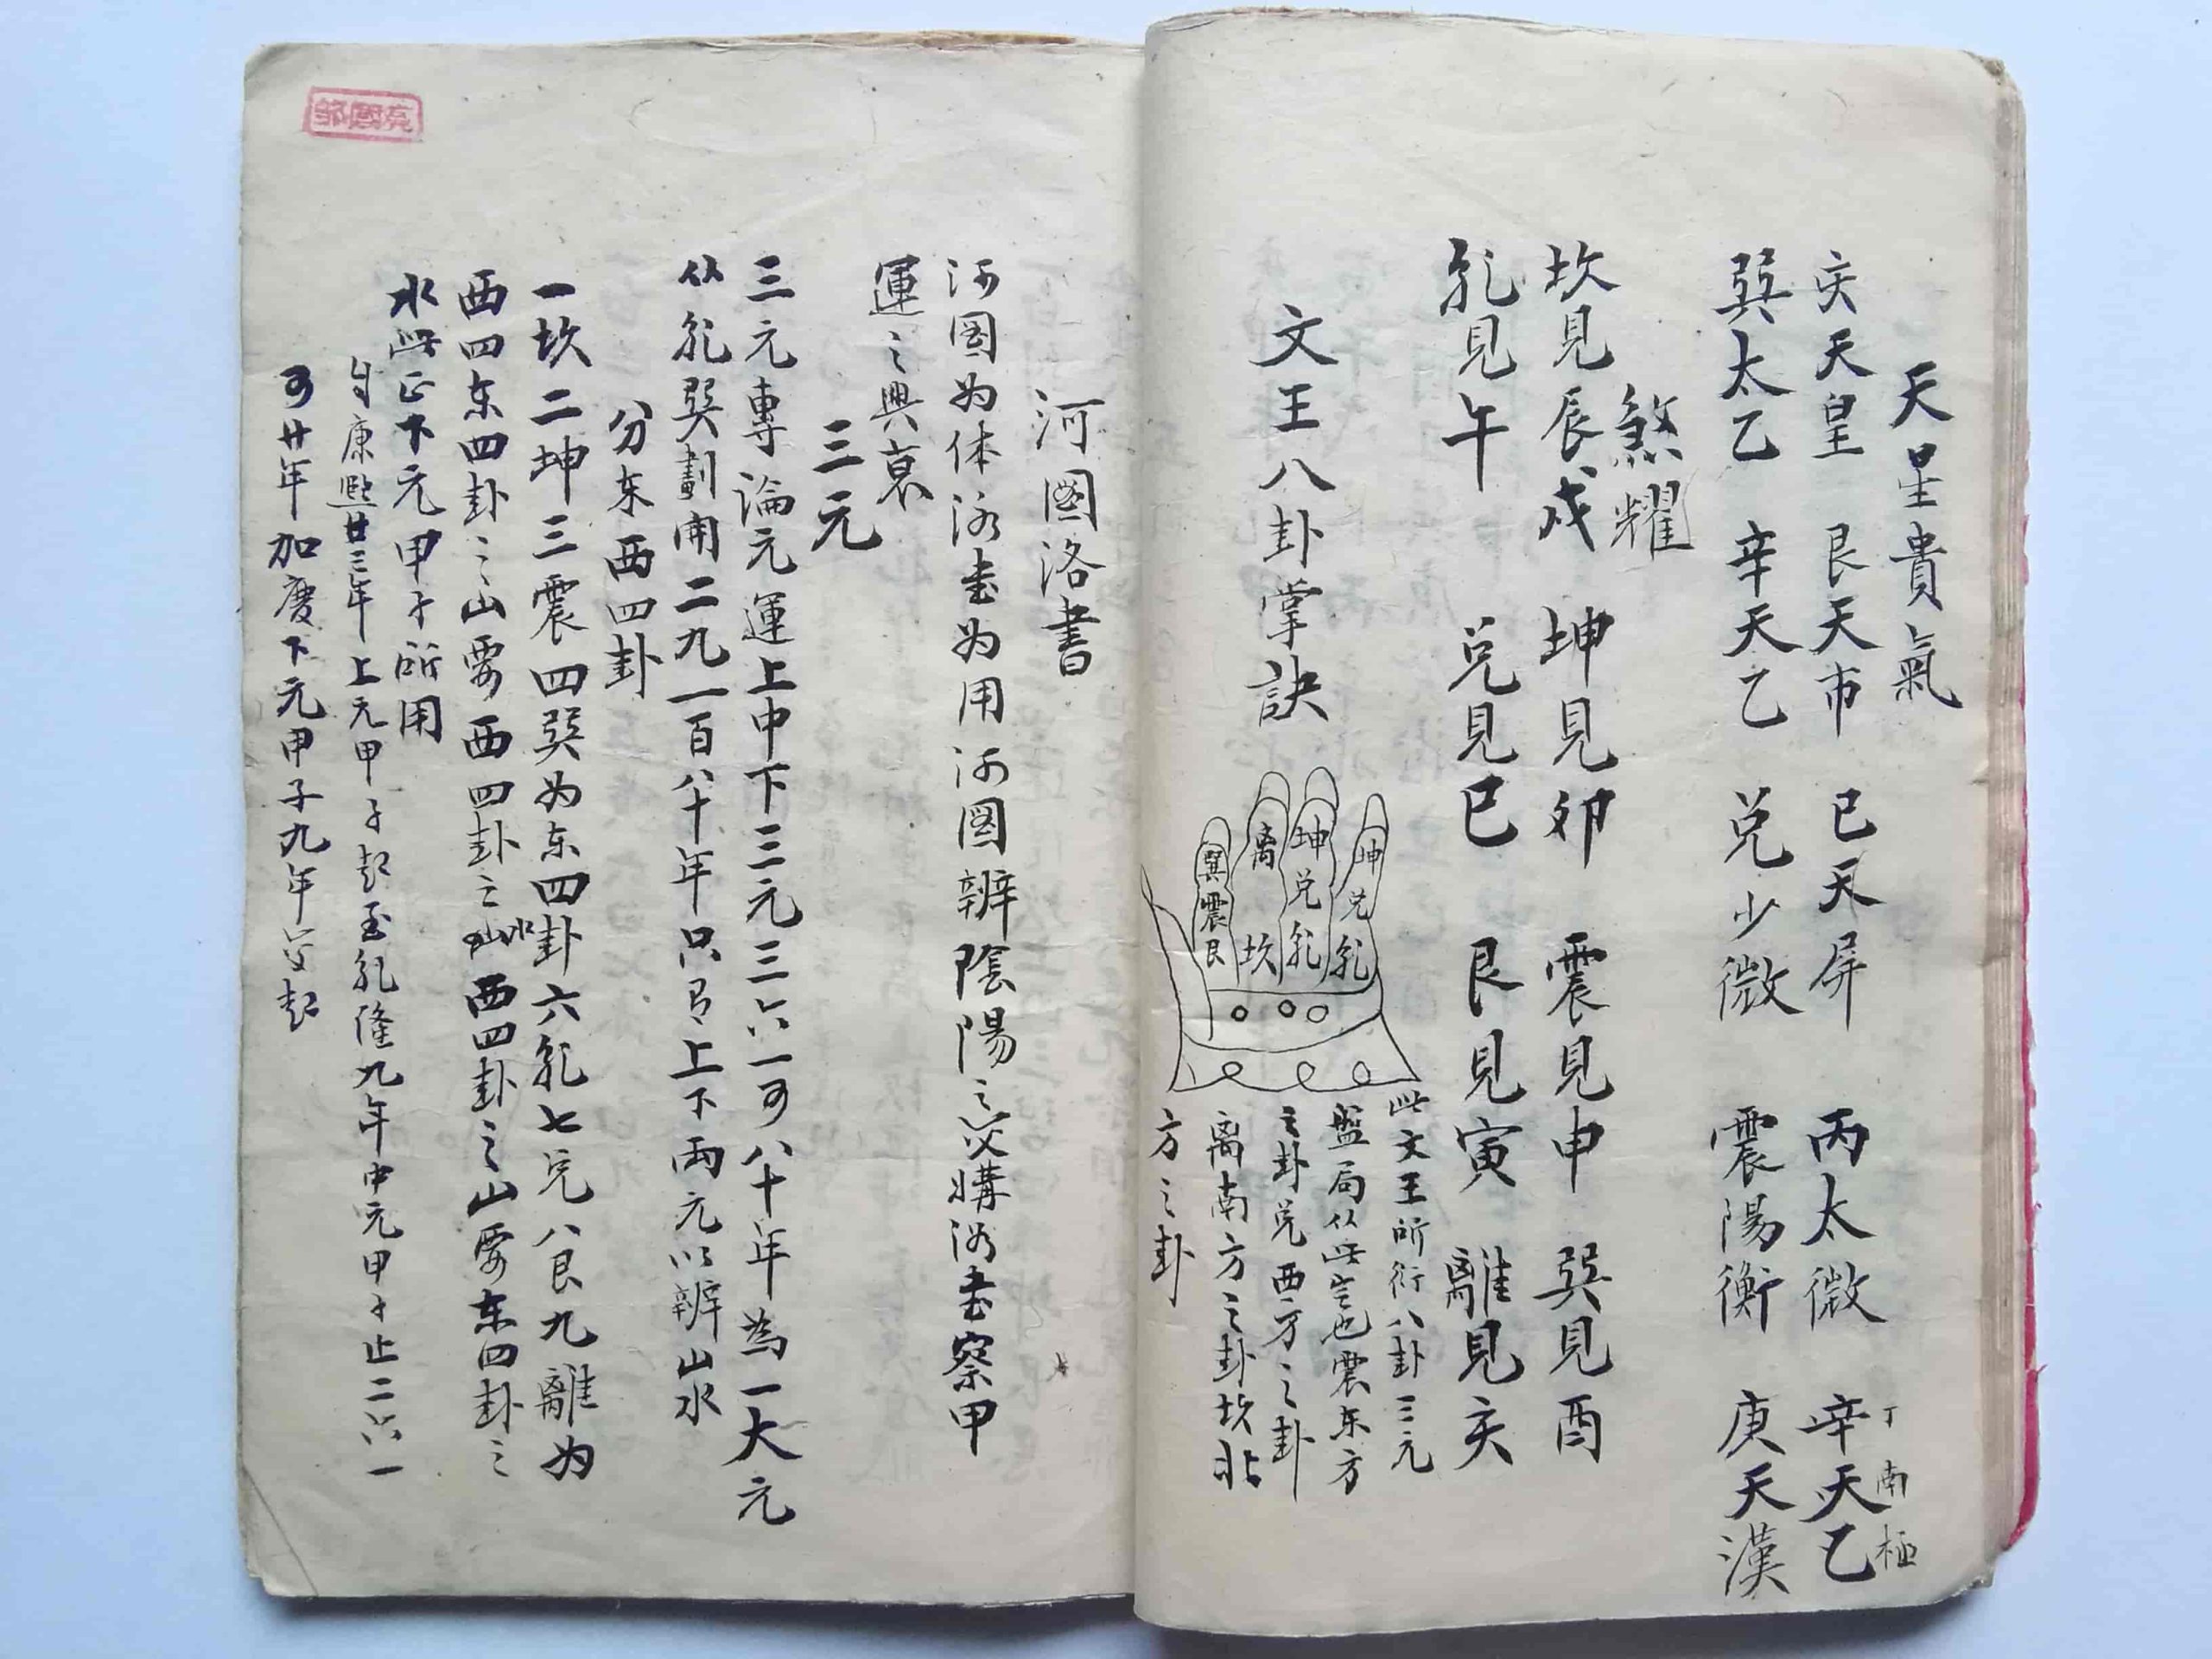 天星貴氣
亥天皇 艮天市 巳天屏 丙太微 辛天乙
丁南極
巽太乙 辛天乙 兑少微 震陽衡 庚天漢
煞耀
坎見辰戌 坤見卯 震見申 巽見酉
乹見午 兑見巳 艮見寅 離見亥
文王八卦掌訣
坤兑乹
坤兑乹
离坎
巽震艮
此文王所衍八卦三元
盤局从此定也震东方
之卦兑西方之卦
离南方之卦坎北
方之卦
河國洛書
河图为体洛书为用河图辨陰陽之交媾洛书察甲
運之興衰
三元
三元專論元運上中下三元三六一百八十年為一大元
从乹巽劃開二九一百八十年只有上下兩元以辨山水
分东西四卦
一坎二坤三震四巽为东四卦六乹七兑八艮九離为
西四东四卦之山要西四卦之水西四卦之山要东四卦之
水此正下元甲子所用
自康熙廿三年上元甲子起至乹隆九年中元甲子止二六一
百廿年加慶下元甲子九年交起
鄒國亮